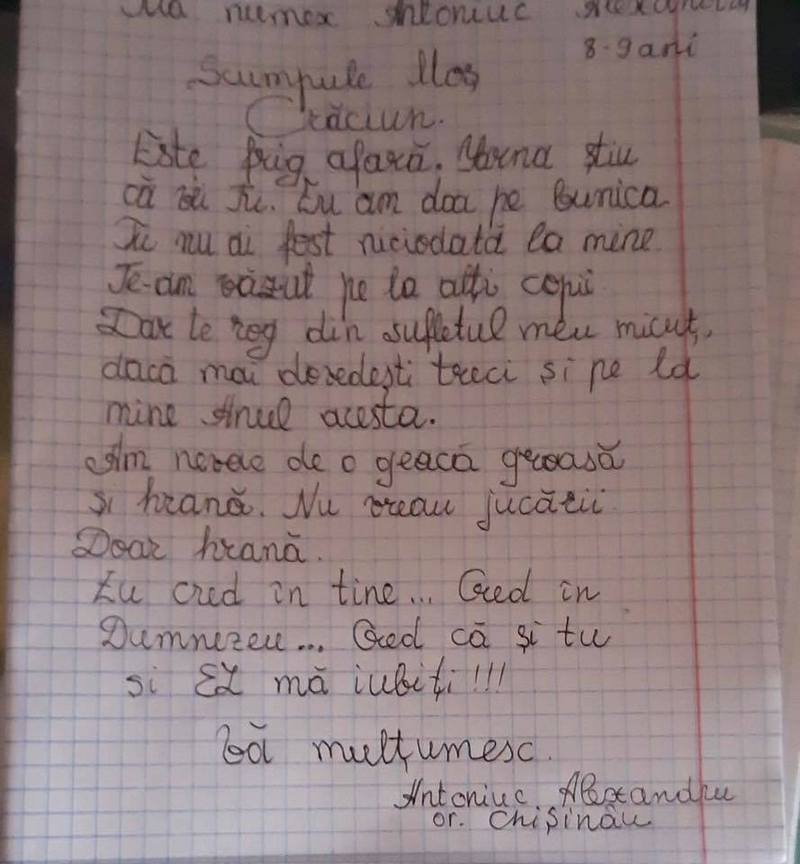 Mă numesc Antoniuc Alexandru
8-9 ani
Scumpule Moș
Crăciun.
Este frig afară. Iarna știu
că vii Tu. Eu am doa pe bunica
Tu nu ai fost niciodată la mine
Te-am văzut pe la alți copii
Dar te rog din sufletul meu micuț,
dacă mai dovedești treci și pe la
mine Anul acesta.
Am nevoe de o geacă groasă
și hrană. Nu vreau jucării
Doar hrană.
Eu cred în tine... Cred în
Dumnezeu... Cred că și tu
si EL mă iubiți!!!
Vă mulțumesc.
Antoniuc Alexandru
or. Chișinău